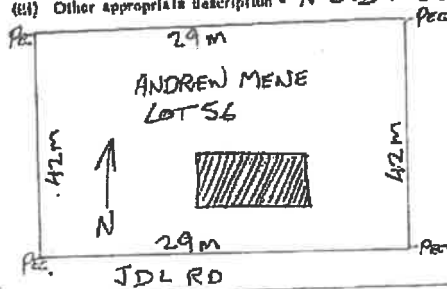 (iii) Other appropriate description
PEG
29 m
PEG
ANDREW MENE
LOT 56
42m
42m
N
29 m
PEG.
PEG
JDL RD